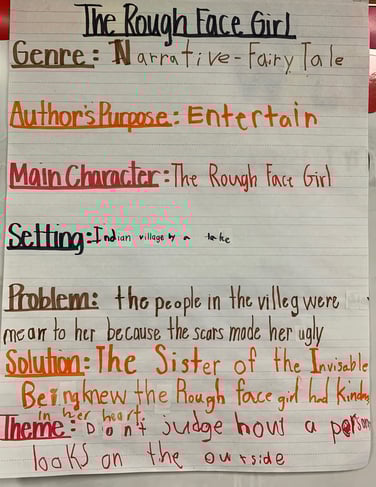 The Rough Face Girl
Genre: Narrative - Fairy Tale
Author's Purpose: Entertain
Main Character: The Rough Face Girl
Setting: Indian village by a lake
Problem: the people in the villeg were
mean to her because the scars made her ugly
Solution: The Sister of the Invisable
Being knew the Rough face girl had kindnes
in her heart.
Theme: Don't judge how a person
looks on the outside